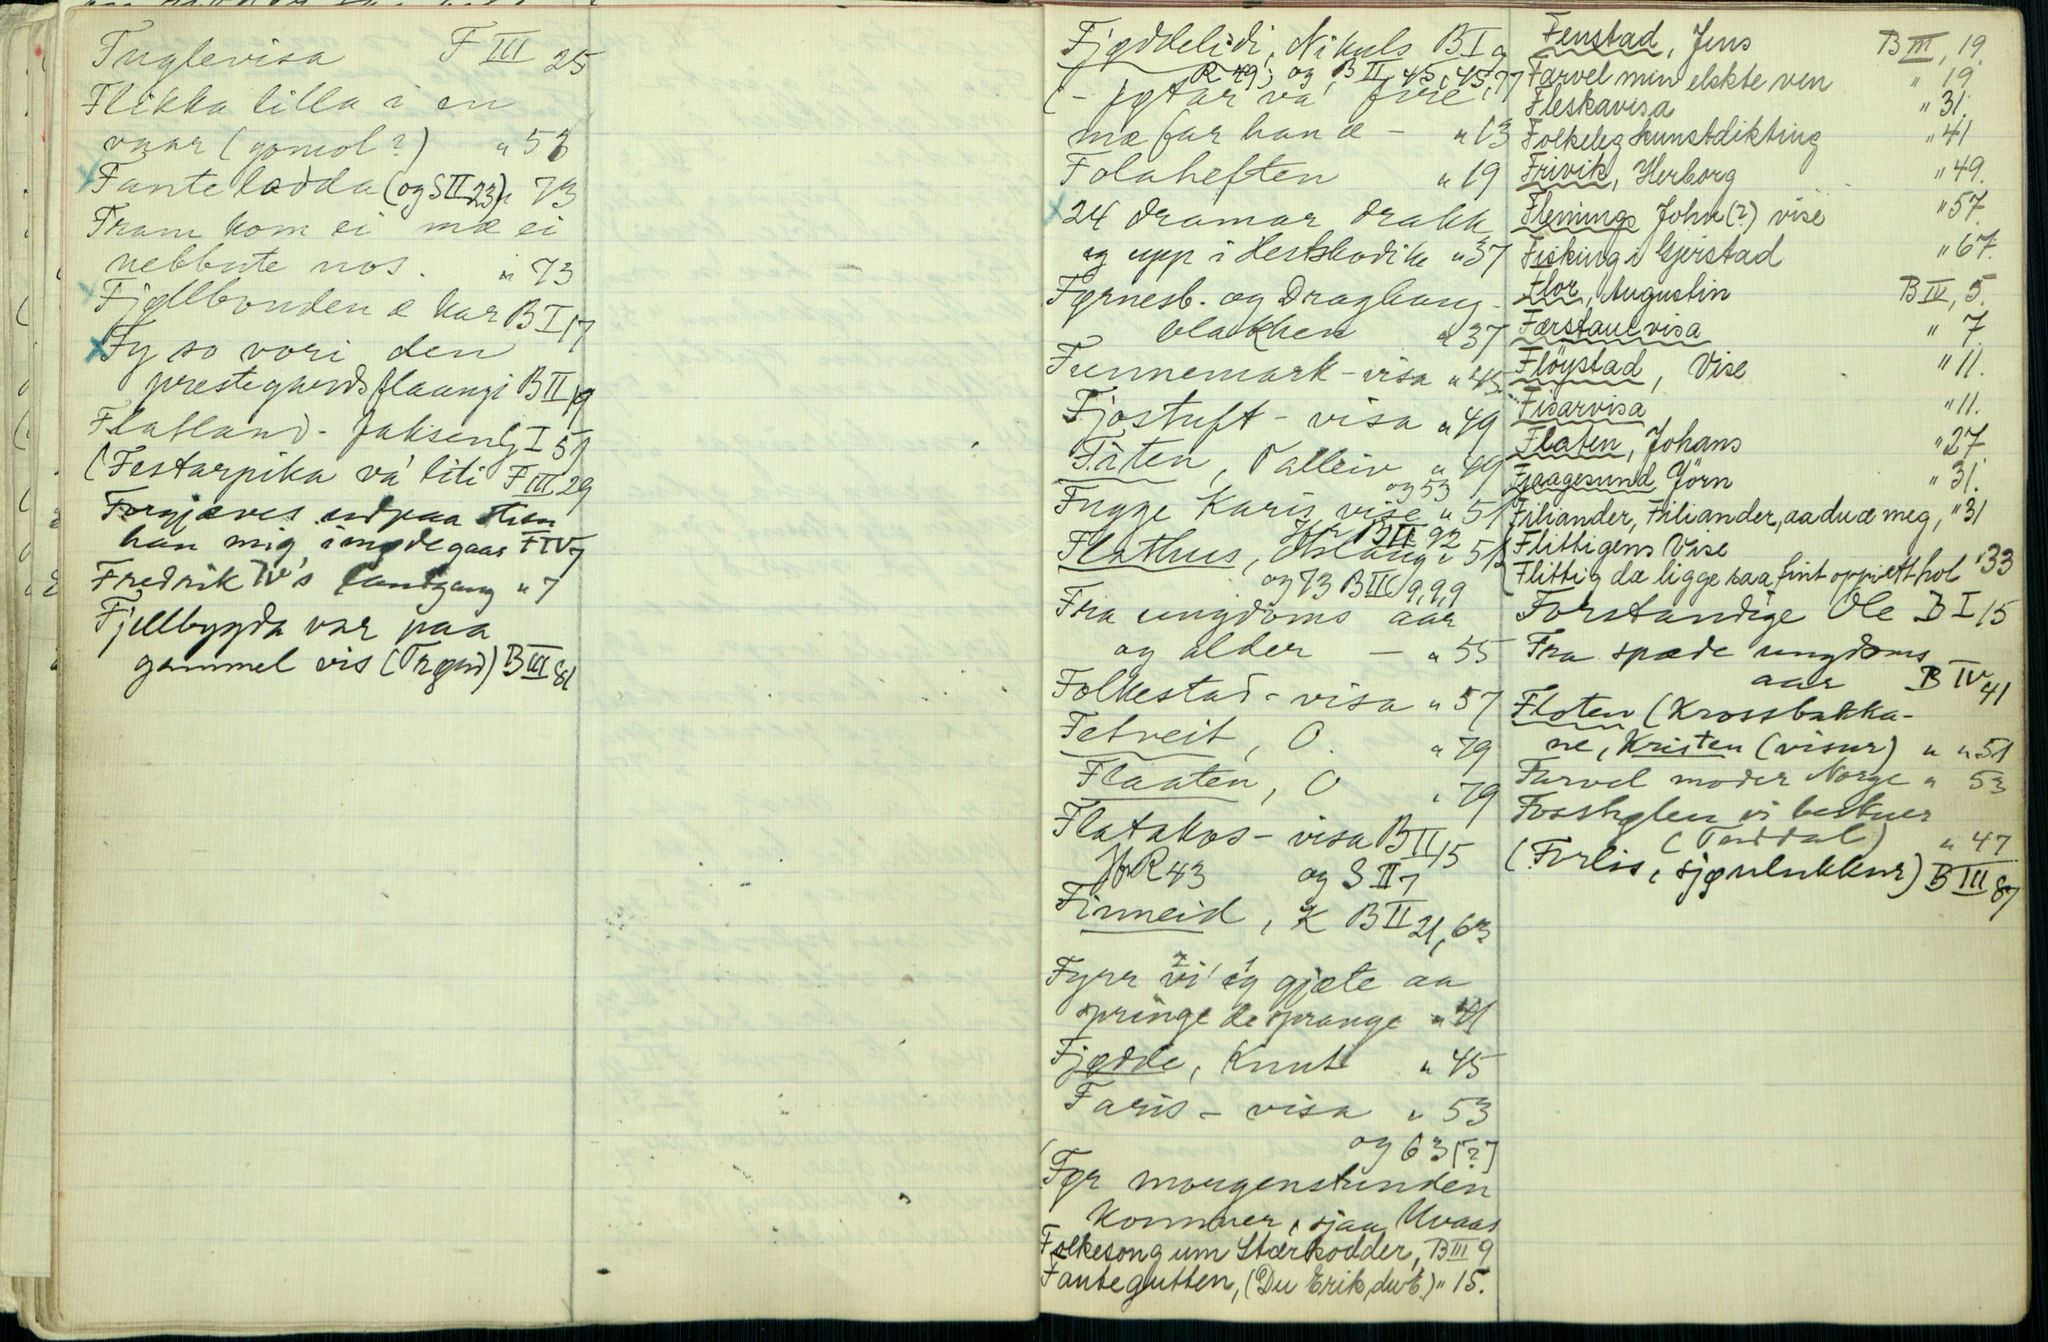 Fuglevisa F III 25
Flikka lilla i en
vaar (gomol?) " 53
x Fanteladda (og S II 23) " 73
Fram kom ei mæ ei
nebbute nos. " 73
Fjellbonden æ kar B I 17
x Fy so vori den
prestegardsflaangi B II 19
Flatland - Jakseng I 51
(Festarpika vá liti F III 29
Forgjæves udpaa
han mig imøde gaar F IV 7
Fredrik IV's landgang " 7
Fjellbygda var paa
gammel vis (Trgnd) B III 81
Fjøddelidi, Nikuls B I 9
R 49; og B II, 45, 45, 77
(- jøtar va fire
mæ far han æ - " 13
Folaheften " 19
x 24 dramar drakk
eg upp i Hestskodike " 37
Førnesb. og Draghaug-
blakken " 37
Funnemark-visa " 45
Fjostuft-visa " 49
Fåten, Talleiv " 49
og 53
Fugge Karis vise " 51
B III 92
Flathus, Aslaug " 51
og 73 B III 9, 9, 9
Fra ungdoms aar
og alder - " 55
Folkestad-visa " 57
Fetveit, O. " 79
Flaaten, O " 79
Flatakos-visa B II 15
R 43 og S II 7
Finneid, K B II 21, 63
Fyrr vi' eg gjæte aa
springe de sprange " 41
Fjødde, Knut " 45
Faris-visa " 53
og 63 [?]
(Før morgenstunden
kommer, sjaa Uvaas
Folkesong um Stærkodder, B III 9
Fantegutten, (Du Erik, du E.) " 15.
Fenstad, Jens B III, 19.
Farvel min elskte ven " 19
Fleskavisa " 31.
Folkeleg kunstdikting " 41
Frivik, Herborg " 49.
Flemings John (?) vise " 57.
Fisking i Gjerstad " 67.
Flor, Augustin B IV, 5.
Færstaulvisa " 7.
Fløystad, Vise " 11.
Fisarvisa " 11.
Flaten, Johans " 27.
Fjaagesund Jörn " 31.
Filiander, Filiander, aa du æ meg, " 31
Flittigens Vise
(Flittig dæ ligge saa fint oppi ett hol " 33
Forstandige Ole B I 15
Fra spæde ungdoms
aar B IV 41
Floten (Krossbakka-
ne, Kristen (visur) " " 51
Farvel moder Norge " 53
Fosshølen vi beskuer
(Tørdal) " 47
(Forlis, sjøulukkur) B III 87